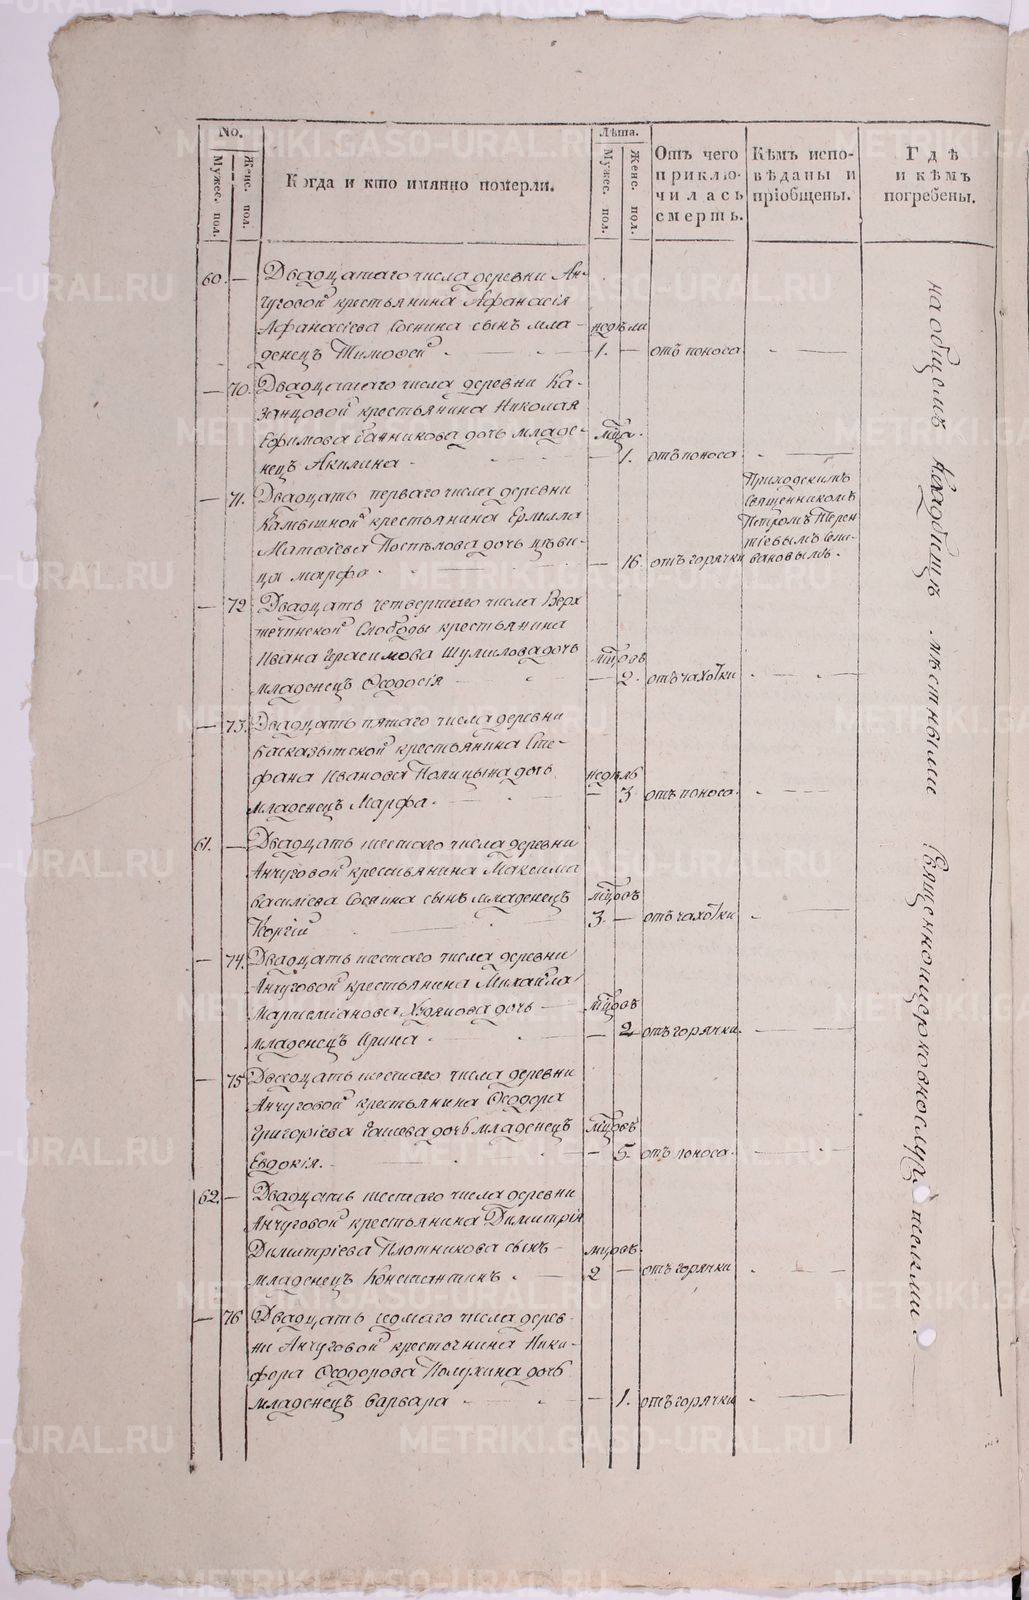 No.
Мужес. пол.
Женс. пол.
Когда и кто имянно померли.
Лѣта.
Мужес. пол.
Женс. пол.
Отъ чего
приклю-
чилась
смерть.
Кѣмъ испо-
вѣданы и
прiобщены.
Гдѣ
и кѣмъ
погребены.
60. — Двадцатаго числа деревни Ан-
чуговой крестьянина Афанасiя
Афанасiева Соснина сынъ мла- недѣли
денецъ Тимофей. 1. — отъ поноса
— 70. Двадцатаго числа деревни Ка-
занцовой крестьянина Николая
Ефимова дочь младе- мца.
нецъ Акилина. — 1. отъ поноса
— 71. Двадцать перваго числа деревни
Камышной крестьянина Ермила
Матфiева Поспѣлова дочь дѣви-
ца марфа. — 16. отъ горячки
Приходскимъ
Священникомъ
Петромъ Терен
тiевымъ Сели-
вановымъ.
— 72 Двадцать четвертаго числа Верх
течинской Слободы крестьянина
Ивана Герасимова Шулилова дочь мцовъ
младенецъ Ѳеодосiя — 2. отъ чахотки
— 73. Двадцать пятаго числа деревни
Басказыкской крестьянина Сте-
фана Иванова Полицына дочь недѣль
младенецъ Марфа. — 3 отъ поноса.
61. — Двадцать шестаго числа деревни
Анчуговой крестьянина Максима
василiева Соснина сынъ младенецъ мцовъ
Георгiй 3. — отъ чахотки
— 74. Двадцать шестаго числа деревни
Анчуговой крестьянина Михайла
Мартемiанова дочь — мцовъ
младенецъ Ирина. — 2 отъ горячки.
— 75 Двадцать шестаго числа деревни
Анчуговой крестьянина Ѳеодора
Григорiева Гашева дочь младенецъ мцовъ
Евдокiя. — 5. отъ поноса.
62. — Двадцать шестаго числа деревни
Анчуговой крестьянина Димитрiя
Димитрiева Плотникова сынъ — мцовъ.
младенецъ Констаптинъ. 2 — отъ горячки
— 76 Двадцать седмаго числа дерев-
ни Анчуговой крестьянина Ники-
фора Ѳеодорова Полухина дочь
младенецъ варвара — 1. отъ горячки
на общемъ кладбищѣ мѣстными Священноицерковнослужителями.